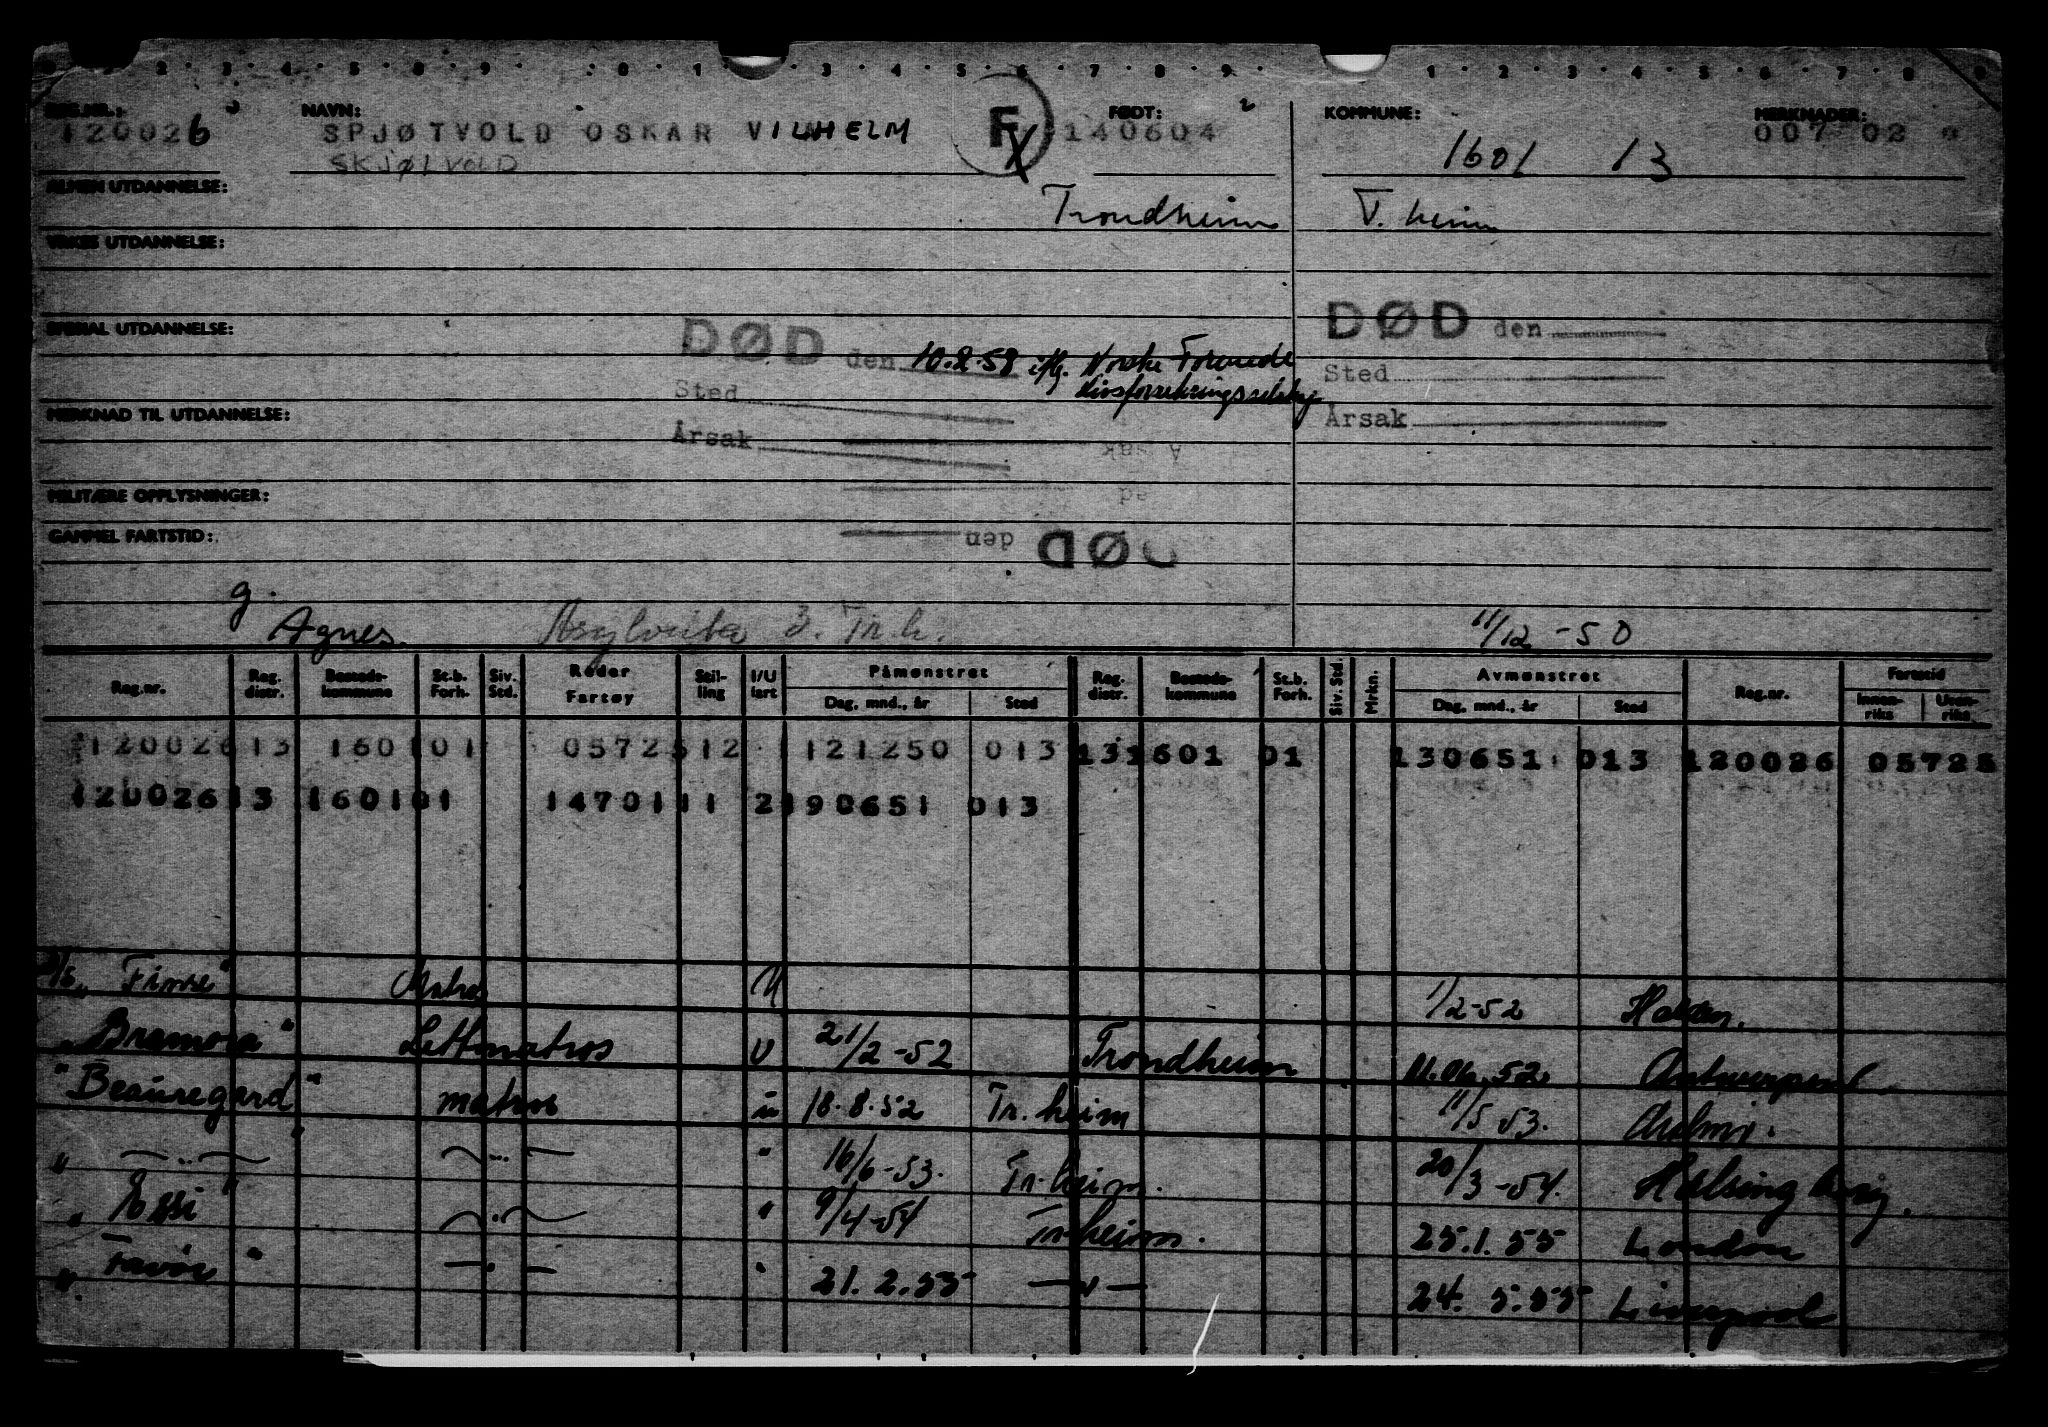 2 · 3 · 4 · 5 · 6 · 9 · · 0 · 1 · · 3 · 4 · 5 · 6 · 7 · 8 · 9 · 1 · 2 · 3 · 4 · 5 · 6 · 7 · 8 · 9
REG.NR.: NAVN: FØDT: KOMMUNE: MERKNADER:
120026 SPJØTVOLD OSKAR VILHELM F X 140604 1601 13 007 02
SKJØLVOLD
ALMEN UTDANNELSE: Trondheim T.heim
YRKES UTDANNELSE:
SPESIAL UTDANNELSE: DØD den 10.2.58 iflg. Norske Forenede DØD den
Livsforsikringsselskap
Sted Sted
MERKNAD TIL UTDANNELSE:
Årsak Årsak
MILITÆRE OPPLYSNINGER:
GAMMEL FARTSTID: DØD den
g.
Agnes. 3. Tr.h. 11/12 -50
Reg.nr. Reg. distr. Bosteds- kommune St.b. Forh. Siv. Std. Reder Fartøy Stil- ling I/U fart Påmønstret Reg. distr. Bosteds- kommune St.b. Forh. Siv. Std. Mrkn. Avmønstret Reg.nr. Fartstid
Dag, mnd., år Sted Dag, mnd., år Sted Innen- riks Uten- riks
120026 13 1601 01 05725 12 1 121250 013 13 1601 01 130651 013 120026 05725
120026 13 1601 01 14701 11 2 190651 013
"Finse" Matros U 1/2-52 Halden.
"Bramora" Lettmatros U 21/2-52 Trondheim 11.06.52. Antwerpen
"Beauregard" matros u 18.8.52 Tr.heim 11/5 53.
" —..— " —..— " 16/6-53. Tr.heim. 20/3-54. Helsingborg.
"Essi" —..— " 9/4-54 Tr.heim. 25.1.55 London
"Favör" —"— " 21.2.55 —"— 24.5.55 Liverpool